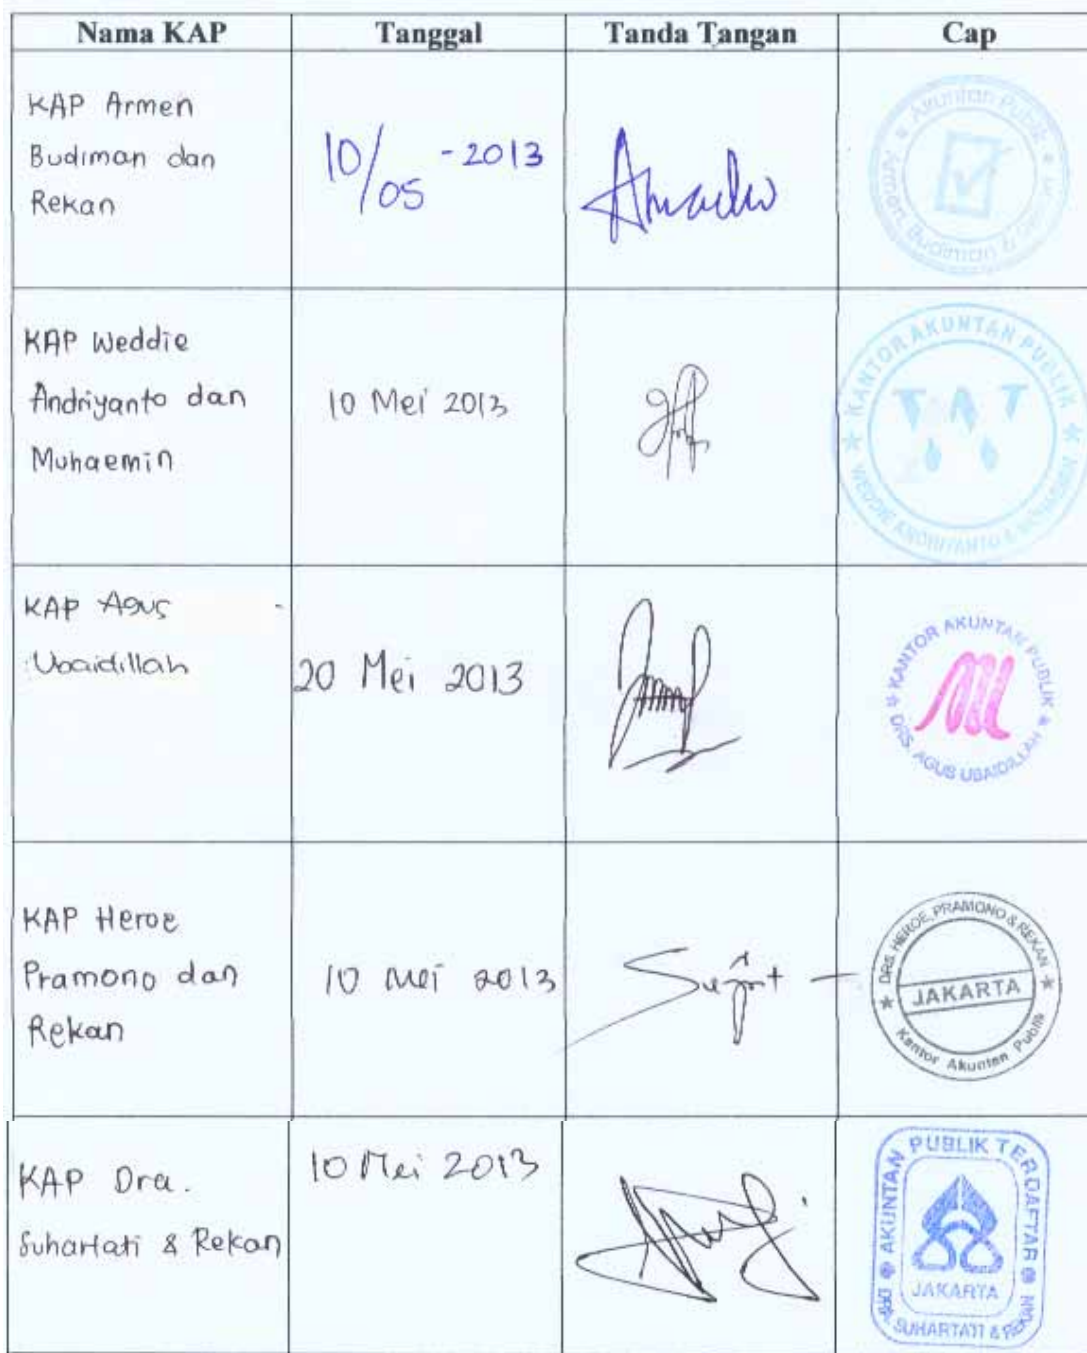 Nama KAP Tanggal Tanda Tangan Cap
KAP Armen
Budiman dan
Rekan
10/05 - 2013
Akuntan Publik
Armen, Budiman &
KAP Weddie
Andriyanto dan
Muhaemin
10 Mei 2013
KANTOR AKUNTAN PUBLIK
WEDDIE ANDRIYANTO & MUHAEMIN
KAP Agus
Ubaidillah
20 Mei 2013
KANTOR AKUNTAN PUBLIK
DRS. AGUS UBAIDILLAH
KAP Heroe
Pramono dan
Rekan
10 Mei 2013
DRS. HEROE, PRAMONO & REKAN
JAKARTA
Kantor Akuntan Publik
KAP Dra.
Suhartati & Rekan
10 Mei 2013
AKUNTAN PUBLIK TERDAFTAR
JAKARTA
SUHARTATI & REKAN